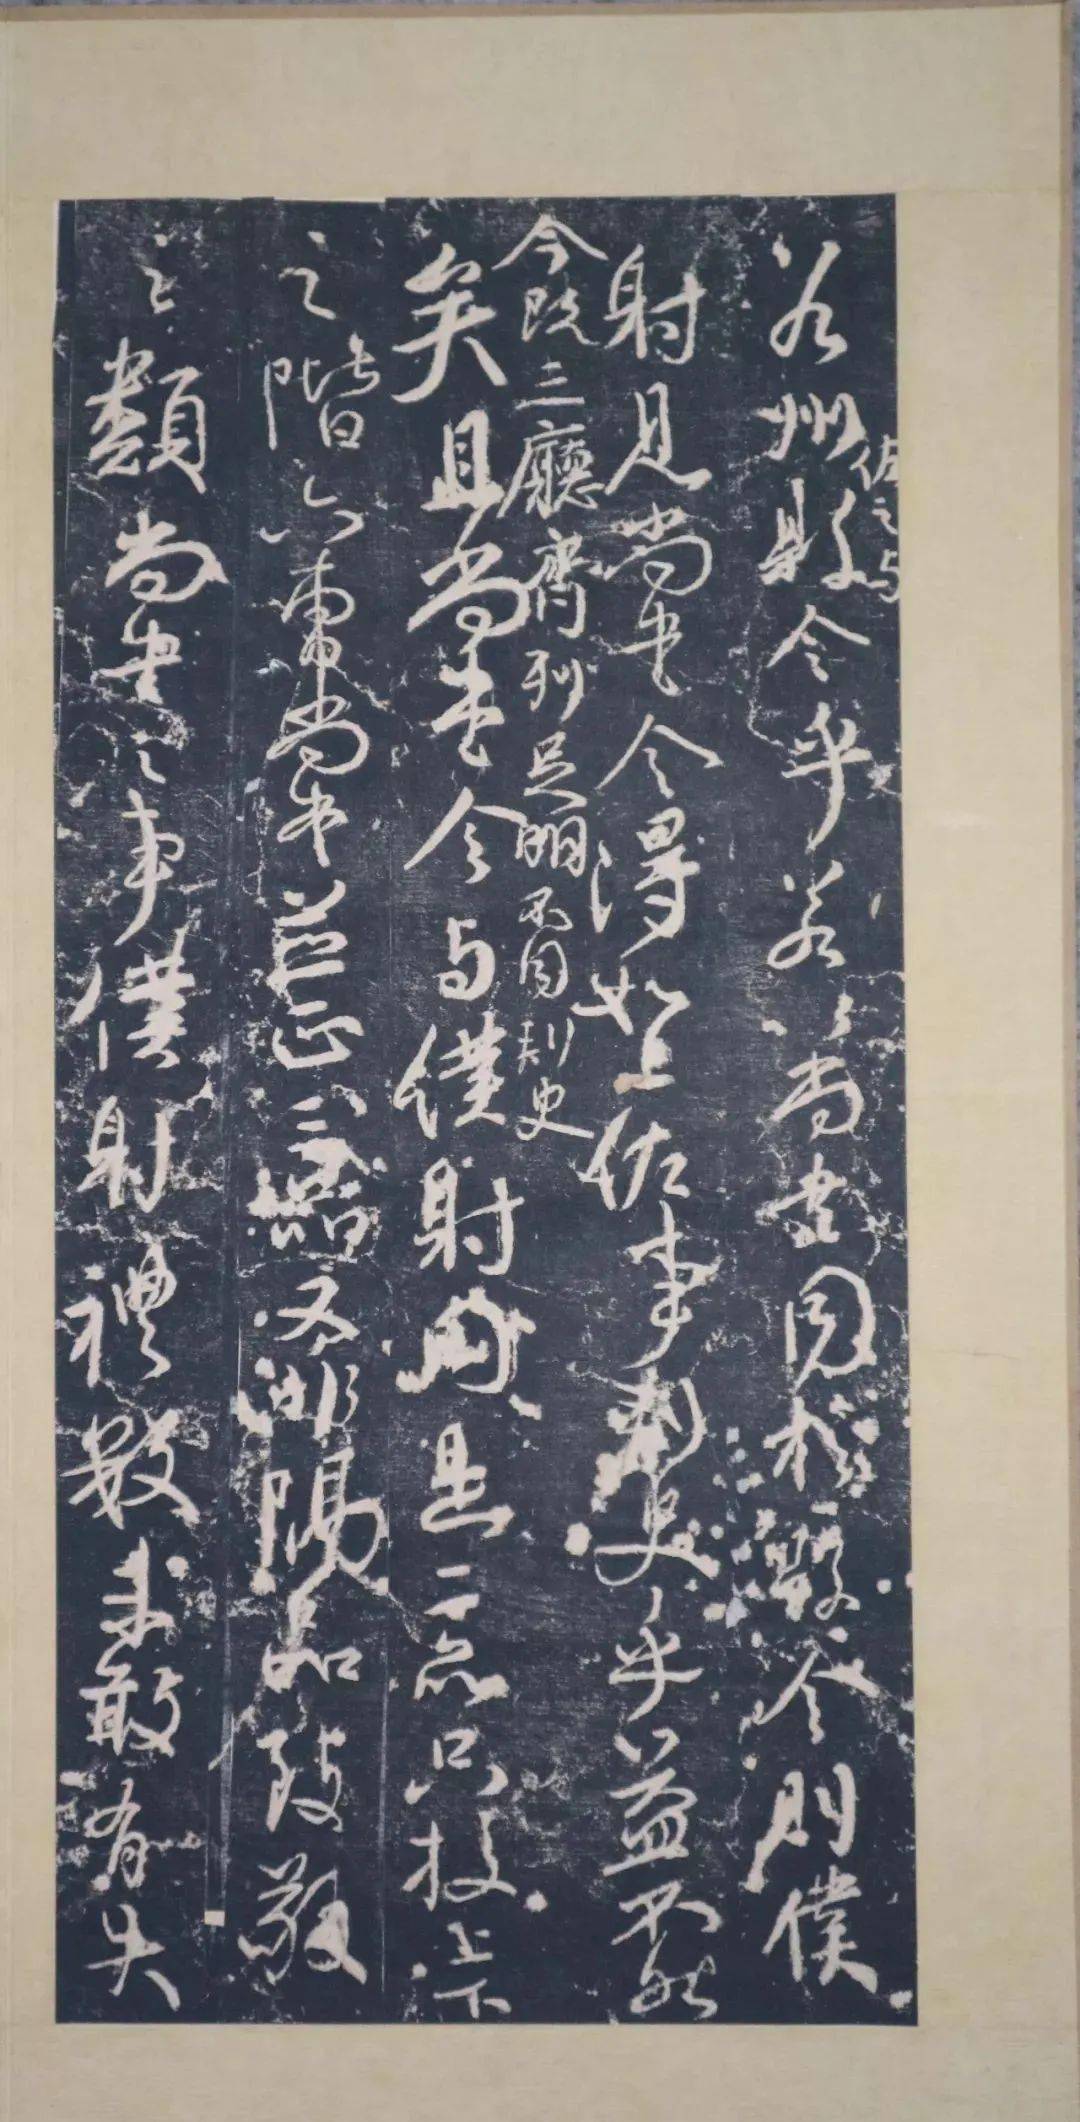 若州縣令乎若以尚書同於縣令則僕
佐之与
射見尚書令得如上佐事刺史乎益不然
今既三廳齊列足明不同刾史
矣且尚書令与僕射同是二品只校上下
之階六曹尚書並正三品又非隔品致敬
之類尚書之事僕射禮數未敢有失